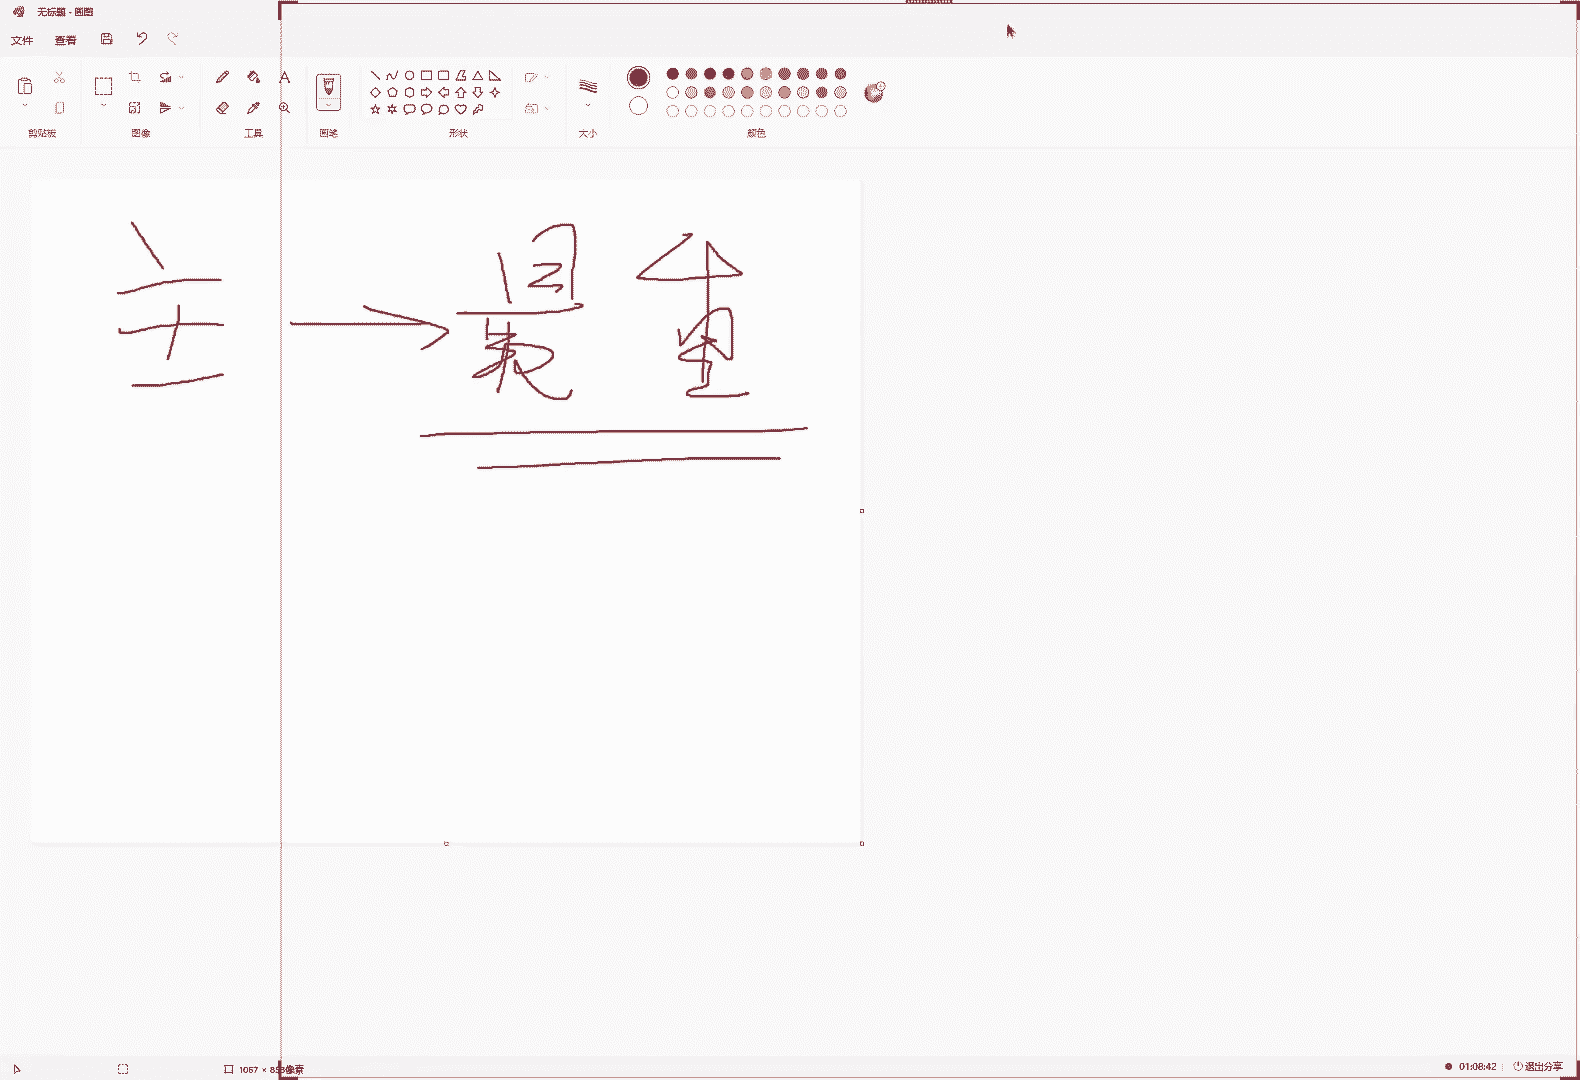 无标题 - 画图
文件 查看
剪贴板 图像 工具 画笔 形状 大小 颜色
主 最
1067 × 858像素
01:08:42 退出分享